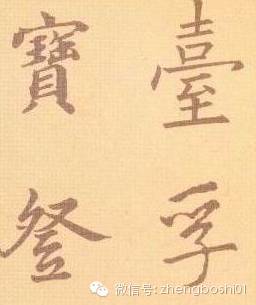 臺孚
寶登
微信号: zhengboshi01